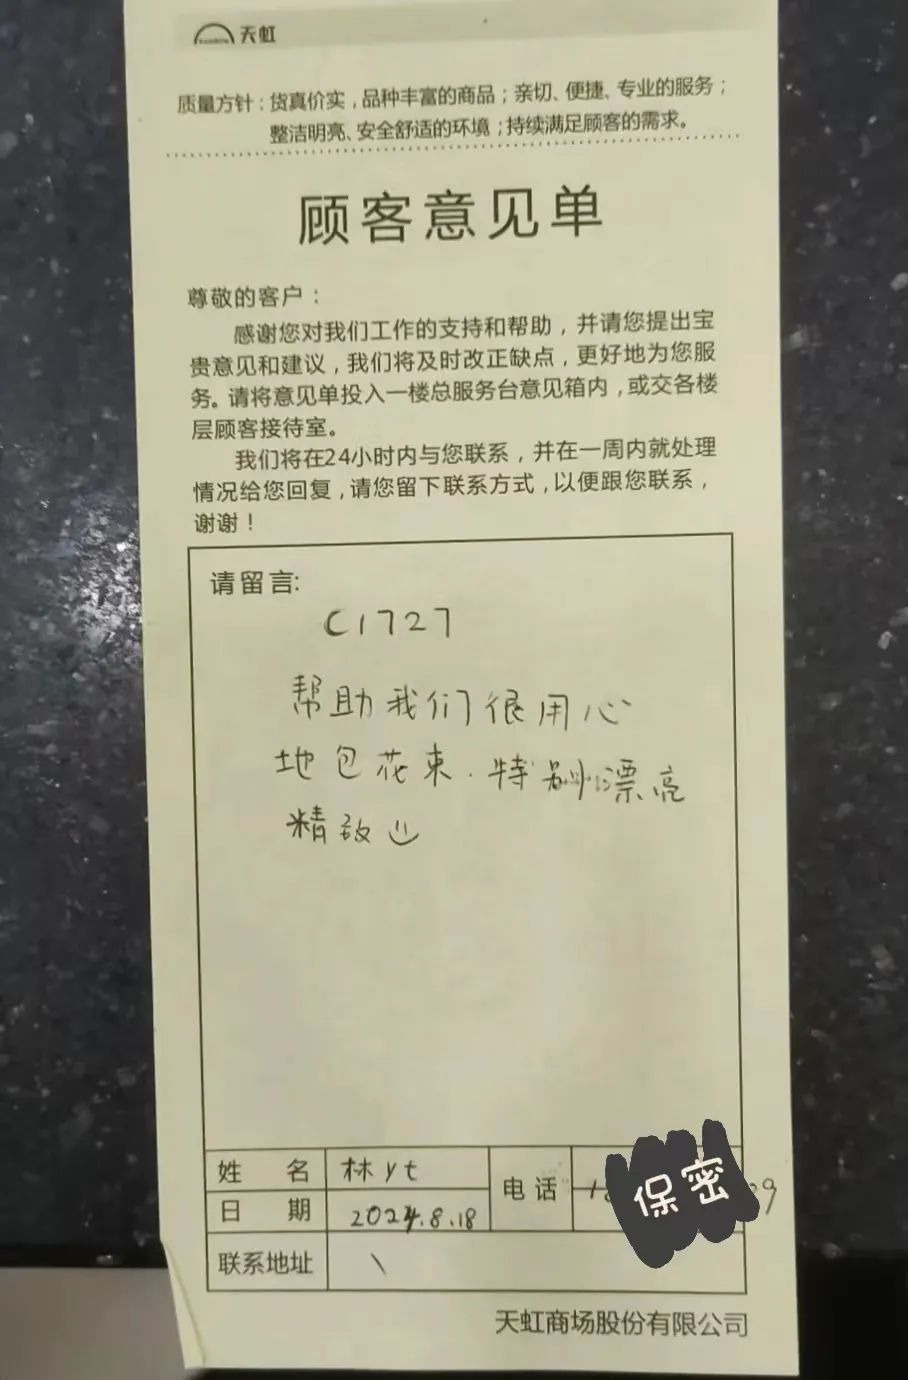 RAINBOW 天虹
质量方针：货真价实，品种丰富的商品；亲切、便捷、专业的服务；
整洁明亮、安全舒适的环境；持续满足顾客的需求。
顾客意见单
尊敬的客户：
感谢您对我们工作的支持和帮助，并请您提出宝
贵意见和建议，我们将及时改正缺点，更好地为您服
务。请将意见单投入一楼总服务台意见箱内，或交各楼
层顾客接待室。
我们将在24小时内与您联系，并在一周内就处理
情况给您回复，请您留下联系方式，以便跟您联系，
谢谢！
请留言:
C1727
帮助我们很用心
地包花束.特别漂亮
精致
姓 名 林yt
电话 保密
日 期 2024.8.18
联系地址 \
天虹商场股份有限公司